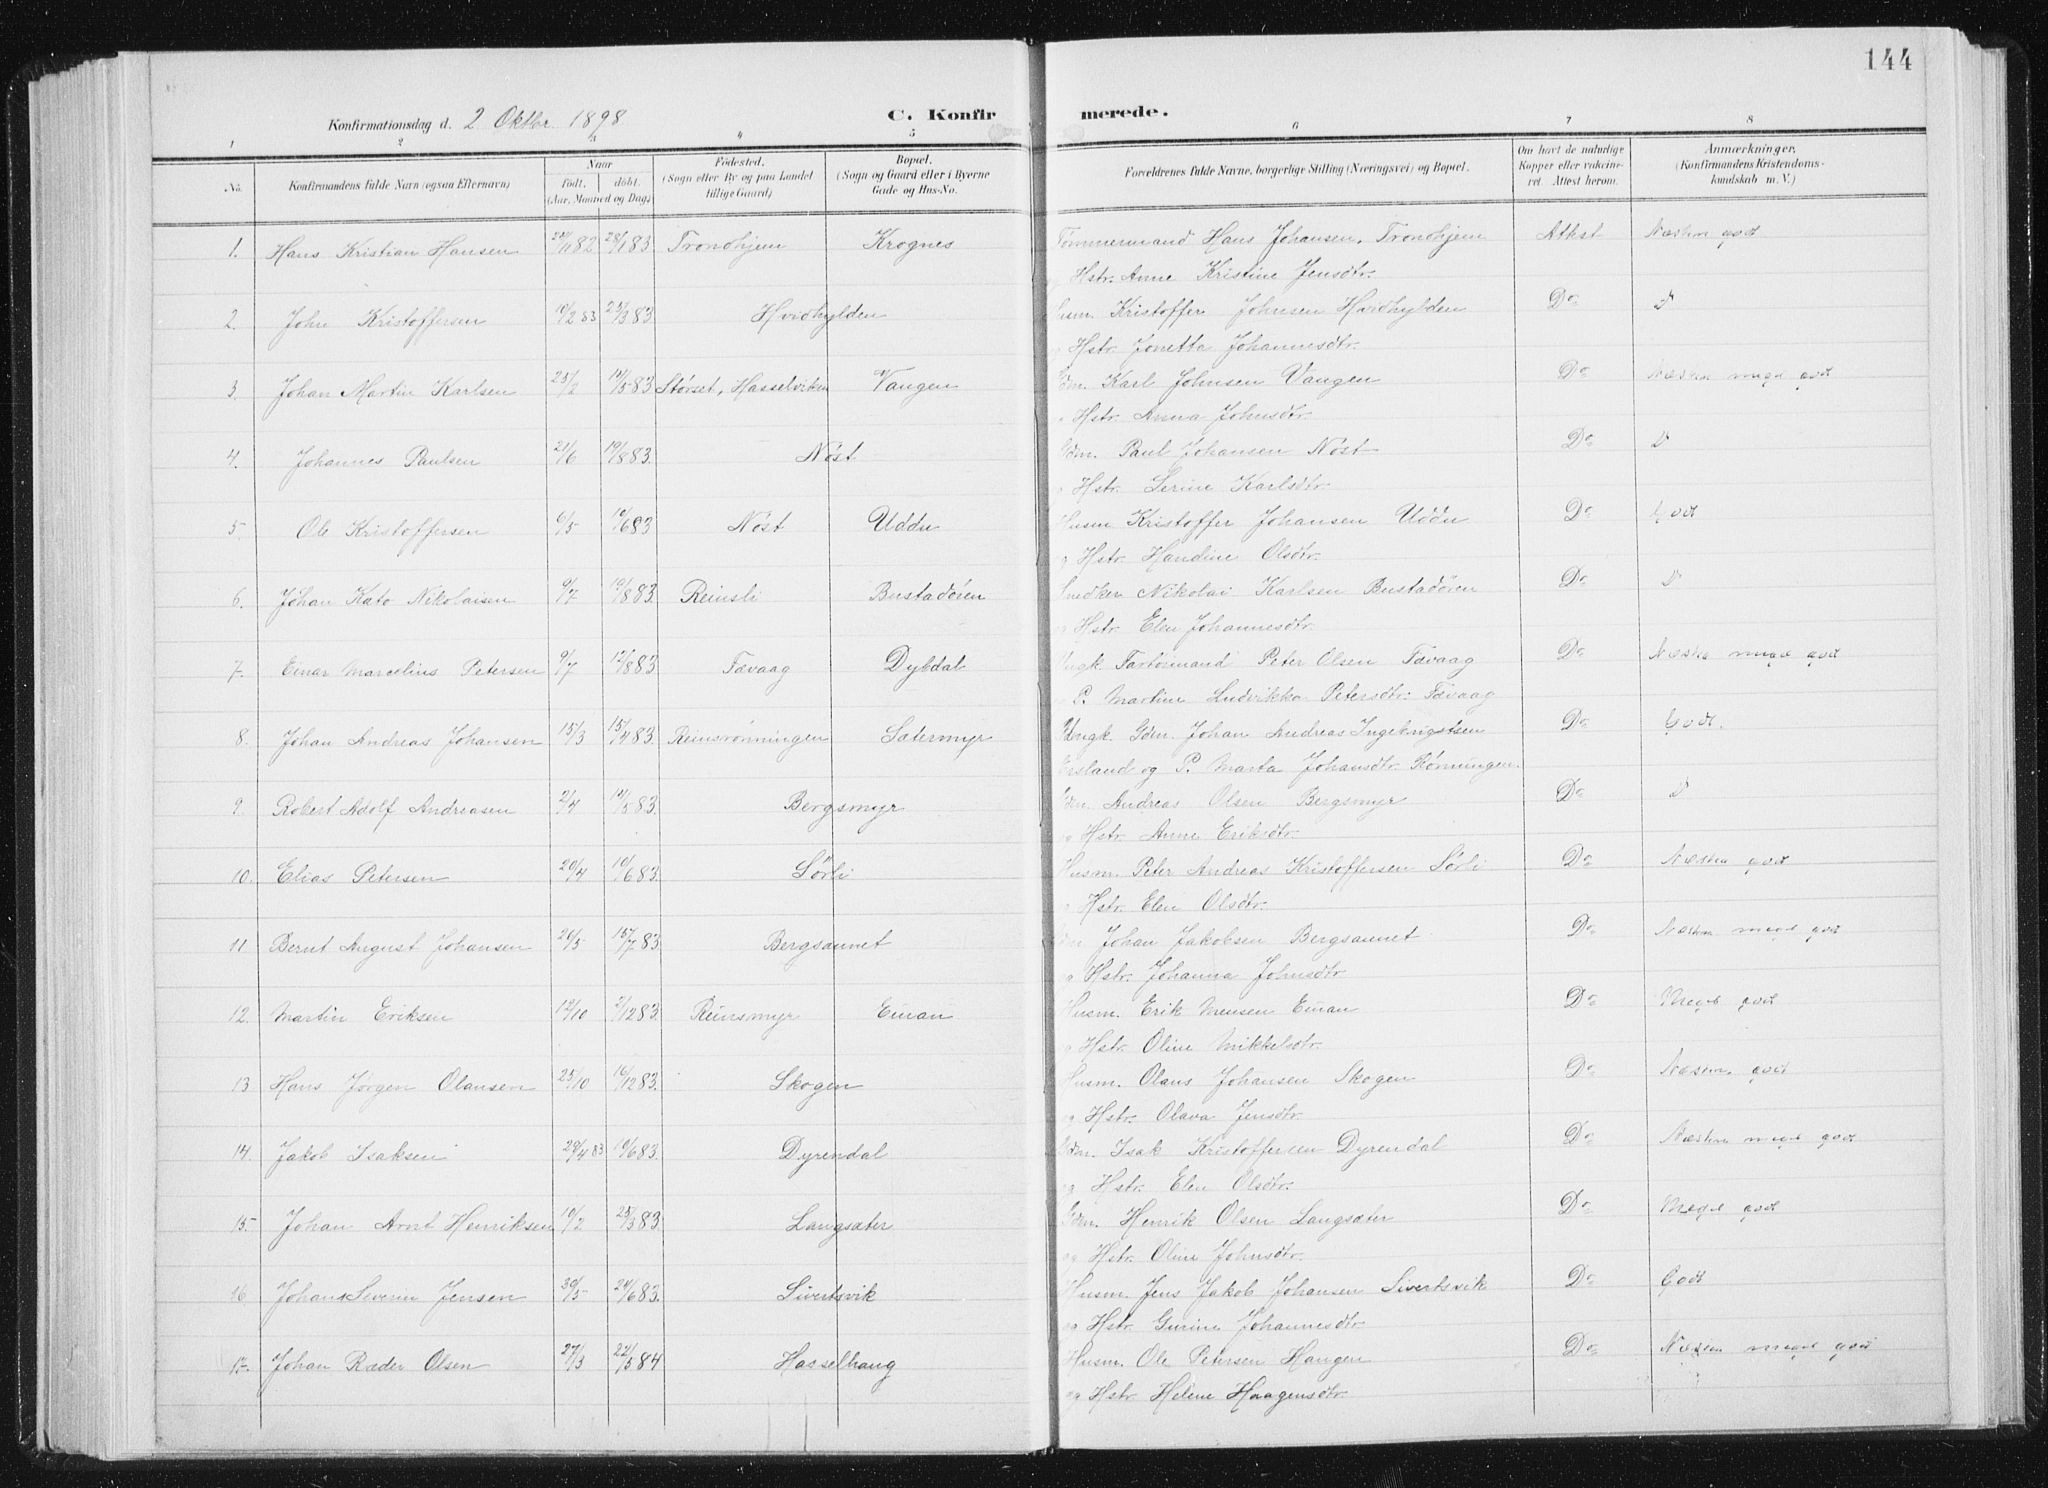 144
Konfirmationsdag d. 2 Oktbr. 1898
C. Konfir
merede.
1 2 3 4 5 6 7 8
No.
Konfirmandens fulde Navn (ogsaa Efternavn)
Naar
født. døbt.
(Aar, Maaned og Dag)
Fødested.
(Sogn eller By og paa Landet
tillige Gaard)
Bopæl.
(Sogn og Gaard eller i Byerne
Gade og Hus-No.
Forældrenes fulde Navne, borgerlige Stilling (Næringsvei) og Bopæl.
Om havt de naturlige
Kopper eller vakcine-
ret. Attest herom.
Anmærkninger.
(Konfirmandens Kristendoms-
kundskab m. V.)
1. Hans Kristian Hansen 28/1 83 Trondhjem Krognes Tømmermand Hans Johansen, Trondhjem Attest Næsten godt
Hstr. Anne Kristine Jensdtr.
2. John Kristoffersen 10/2 83 25/3 83 Hvidhylden Husm. Kristoffer Johnsen Hvidhylden Do
Hstr. Jonetta Johannesdtr.
3. Johan Martin Karlsen 25/2 14/5 83 Størset, Hasselviken Vangen Gdm. Karl Johnsen Vangen Do Næsten meget godt
Hstr. Anna Johnsdtr.
4. Johannes Paulsen 21/6 19/8 83 Nøst Gdm. Paul Johansen Nøst Do
Hstr. Serine Karlsdtr.
5. Ole Kristoffersen 6/5 10/6 83 Nøst Uddu Husm Kristoffer Johansen Uddu Do Godt
og Hstr. Handine Olsdtr.
6. Johan Kato Nikolaisen 9/7 19/8 83 Reinsli Bustadøren Snedker Nikolai Karlsen Bustadøren Do
Hstr. Elen Johannesdtr.
7. Einar Marcelius Petersen 9/7 12/8 83 Fævaag Dybdal Ungk. Peter Olsen Fævaag Do Næsten meget godt
P. Martine Ludvikka Petersdtr. Fævaag
8. Johan Andreas Johansen 15/3 15/4 83 Reinsrønningen Sætermyr Ungk. Gdm. Johan Andreas Ingebrigtsen Do Godt.
og P. Marta Johansdtr. Rønningen.
9. Robert Adolf Andreasen 2/4 14/5 83 Bergsmyr Gdm. Andreas Olsen Bergsmyr Do
og Hstr. Anne Eriksdtr.
10. Elias Petersen 20/4 10/6 83 Sørli Husm. Peter Andreas Kristoffersen Sørli Do Næsten godt
Hstr. Elen Olsdtr.
11 Bernt August Johansen 26/5 15/7 83 Bergsaunet Gdm. Johan Jakobsen Bergsaunet Do Næsten meget godt
og Hstr. Johanna Johnsdtr.
12. Martin Eriksen 12/10 2/12 83 Reinsmyr Eiman Husm. Erik Monsen Eiman Do Meget godt
og Hstr. Oline Mikkelsdtr.
13 Hans Jørgen Olausen 25/10 16/12 83 Skogen Husm. Olaus Johansen Skogen Do Næsten godt
og Hstr. Olava Jensdtr.
14. Jakob Isaksen 29/4 83 10/6 83 Dyrendal Gdm. Isak Kristoffersen Dyrendal Do Næsten meget godt
og Hstr. Elen Olsdtr.
15. Johan Arnt Henriksen 10/2 25/3 83 Langsæter Gdm. Henrik Olsen Langsæter Do Meget godt
og Hstr. Oline Johnsdtr.
16 Johan Severin Jensen 30/5 24/6 83 Sivertsvik Husm. Jens Jakob Johansen Sivertsvik Do Godt
og Hstr. Gurine Johannesdtr.
17. Johan Ræder Olsen 27/3 22/5 84 Hasselhaug Husm. Ole Petersen Haugen Do Næsten meget godt
og Hstr. Helene Haagensdtr.